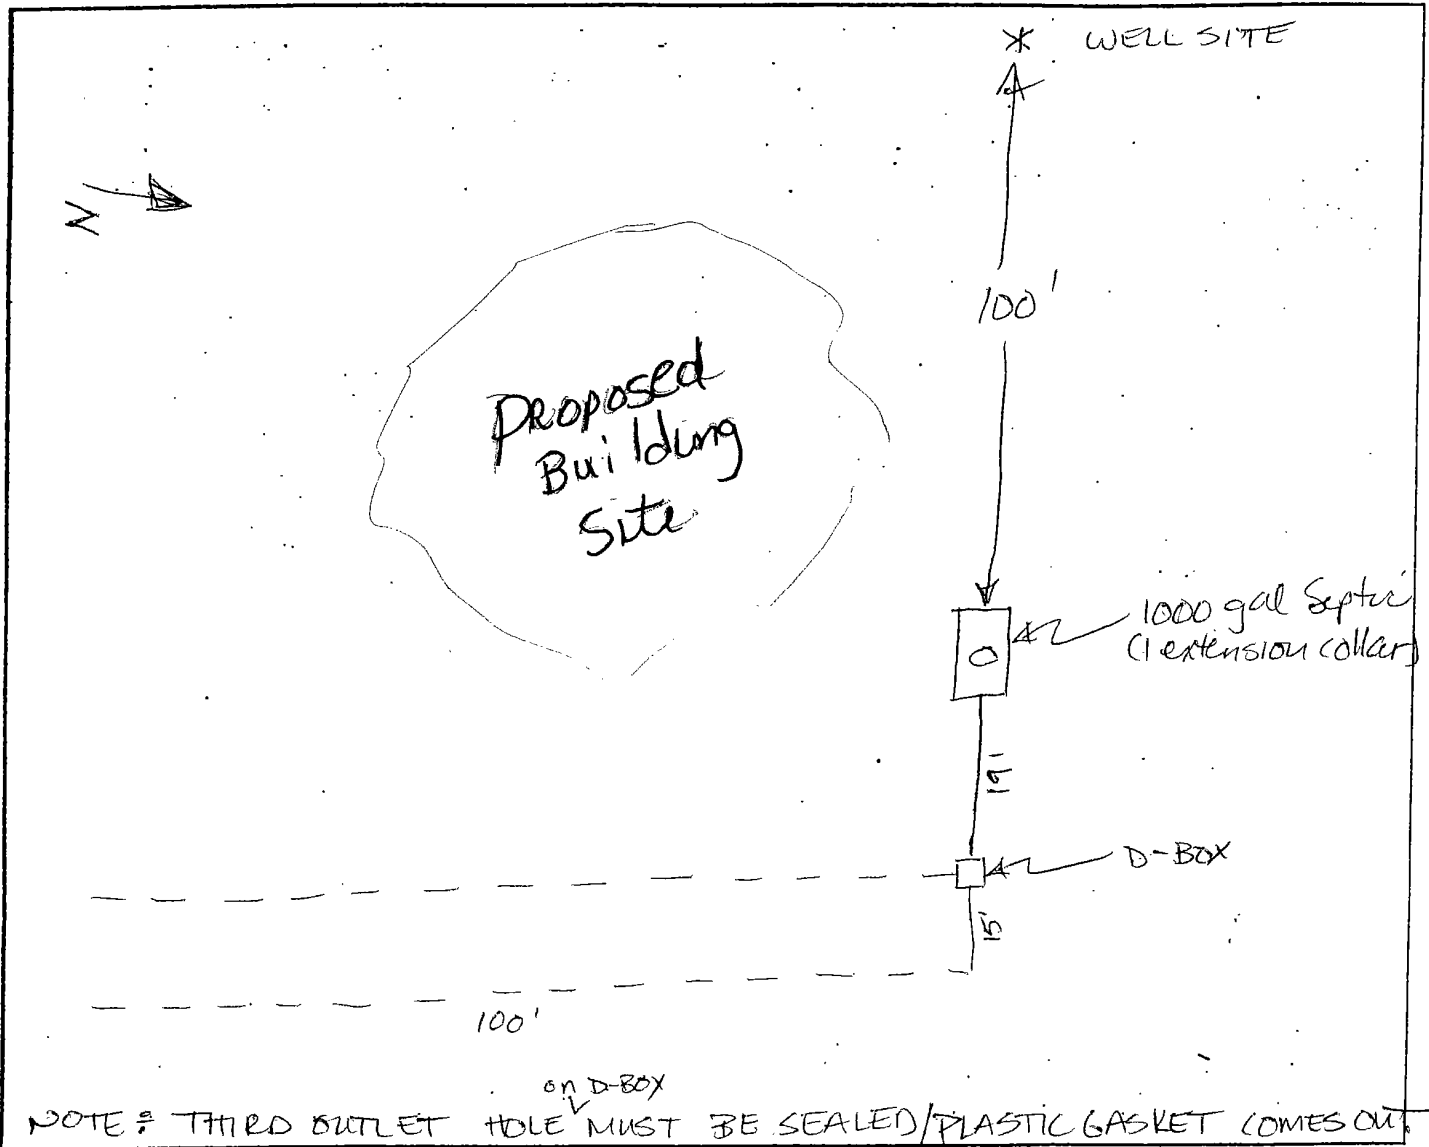 * WELL SITE
N
100'
Proposed
Building
Site
1000 gal Septic
(1 extension collar)
19'
D-BOX
15'
100'
on D-BOX
NOTE: THIRD OUTLET HOLE MUST BE SEALED/PLASTIC GASKET COMES OUT